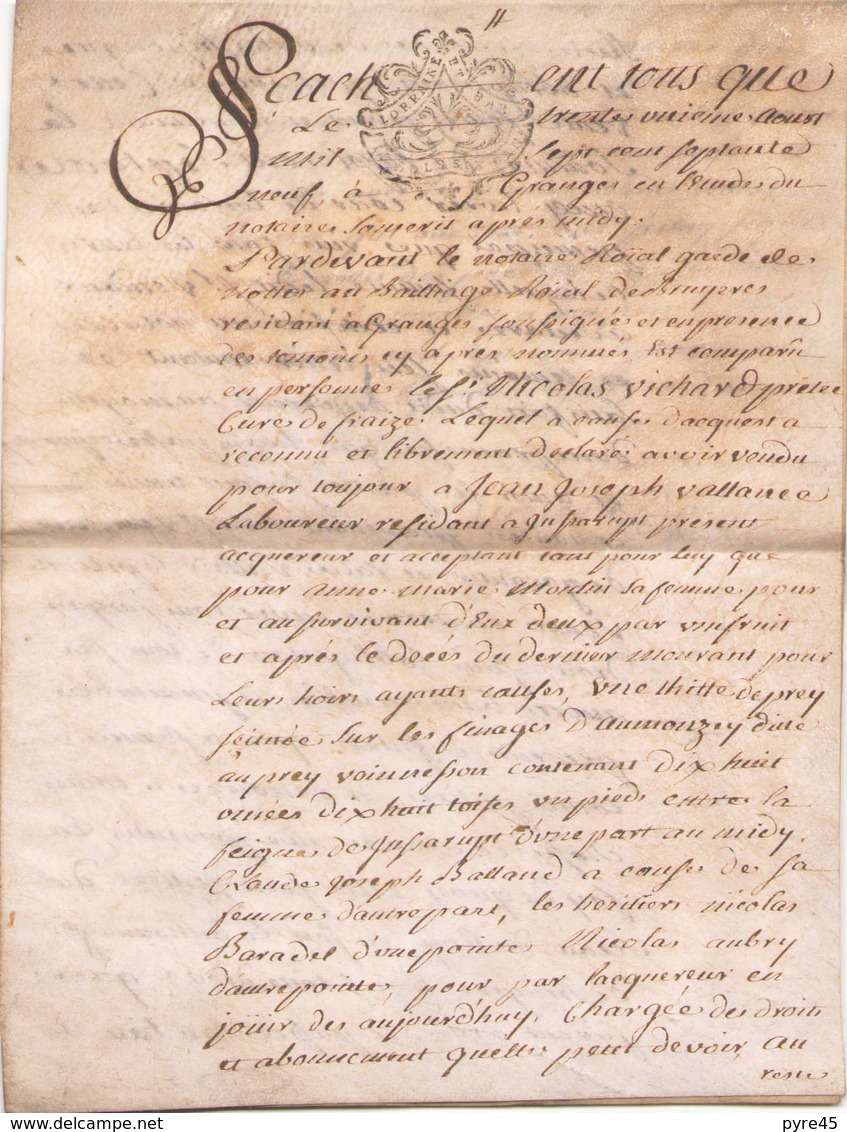 Scachent tous que
Le trente unieme aoust
mil sept cent septante
neuf à Granges en l'Etude du
notaire souscrit apres midy.
Pardevant le notaire Roial garde
nottes au Bailliage Roial de Bruyeres
residant a Granges soussigné et en presence
des témoins cy apres nommés, Est comparû
en personne le Sr. Nicolas Vichard prêtre
Curé de fraize. Lequel a cause d'acquest a
reconnu et librement declaré avoir vendu
pour toujour a Jean Joseph Vallance
Laboureur residant a Jussarupt present
acquereur et acceptant tant pour luy que
pour anne marie sa femme pour
et au survivant d'Eux deux par usufruit
et aprés le decés du dernier mourant pour
Leurs hoirs ayants causes, une de prey
scituée sur les finages D'aumonzey dite
au prey voinnesson contenant dix huit
omées dix huit toises un pied entre la
feigne de Jussarupt d'une part au midy,
Claude Joseph Balland a cause de sa
femme d'autre part, les heritiers nicolas
Baradel d'une pointe Nicolas aubry
d'autre pointe, pour par l'acquereur en
joüir des aujourd'huy, Chargée des droits
et abonnement quelle peut devoir, au
reste
LORRAINE ET BAR
pyre45